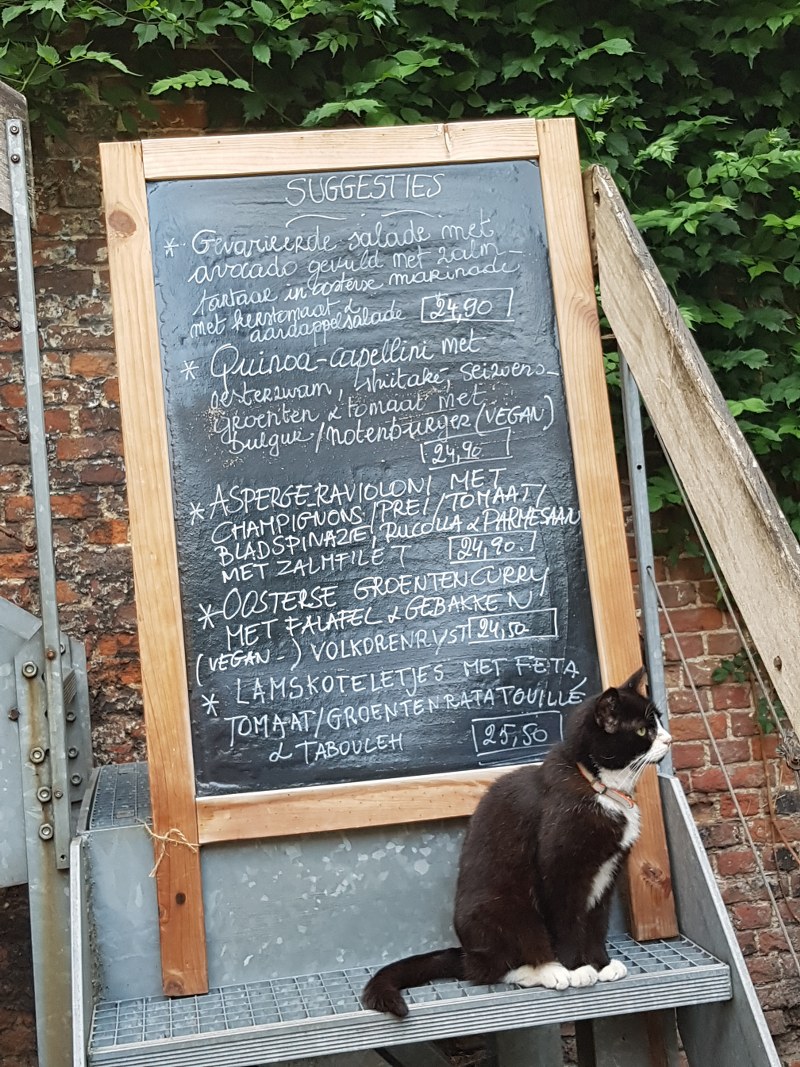 SUGGESTIES
* Gevarieerde salade met
avocado gevuld met zalm-
tartaar in oosterse marinade
met kerstomaat &
aardappelsalade 24,90
* Quinoa-capellini met
oesterzwam, shiitaké, seizoens-
groenten & tomaat met
bulgur/notenburger (VEGAN)
24,90
* ASPERGE-RAVIOLONI MET
CHAMPIGNONS/PREI/TOMAAT/
BLADSPINAZIE, RUCOLLA & PARMESAAN
MET ZALMFILET 24,90
* OOSTERSE GROENTENCURRY
MET FALAFEL & GEBAKKEN
(VEGAN-) VOLKORENRIJST 24,50
* LAMSKOTELETJES MET FETA,
TOMAAT/GROENTENRATATOUILLE
& TABOULEH 25,50